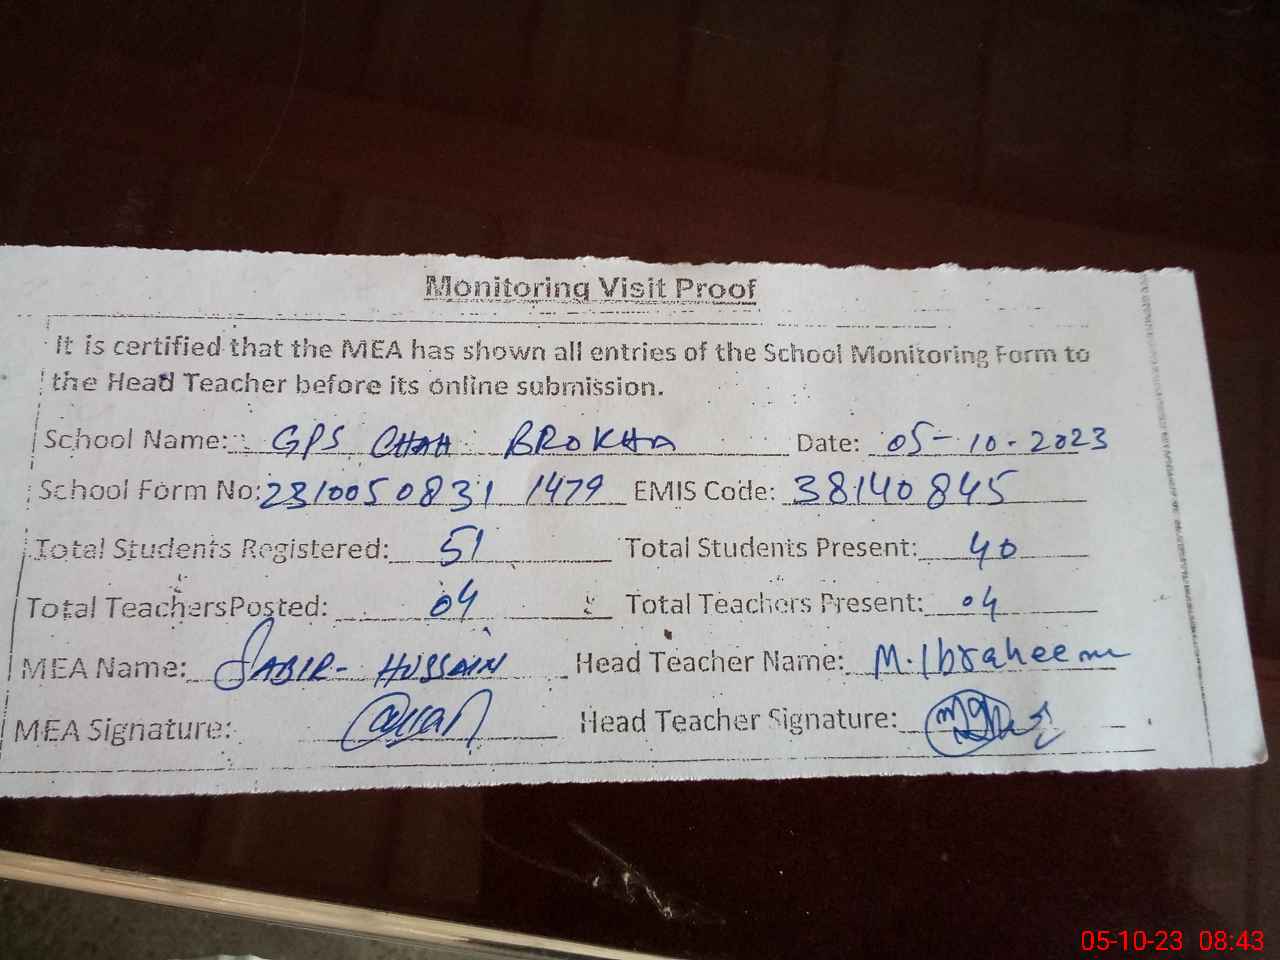 Monitoring Visit Proof
It is certified that the MEA has shown all entries of the School Monitoring Form to
the Head Teacher before its online submission.
School Name: GPS CHAH BROKHA Date: 05-10-2023
School Form No: 2310050831 1479 EMIS Code: 38140845
Total Students Registered: 51 Total Students Present: 40
Total Teachers Posted: 04 Total Teachers Present: 04
MEA Name: SABIR- HUSSAIN Head Teacher Name: M.Ibraheem
MEA Signature: Head Teacher Signature:
05-10-23 08:43